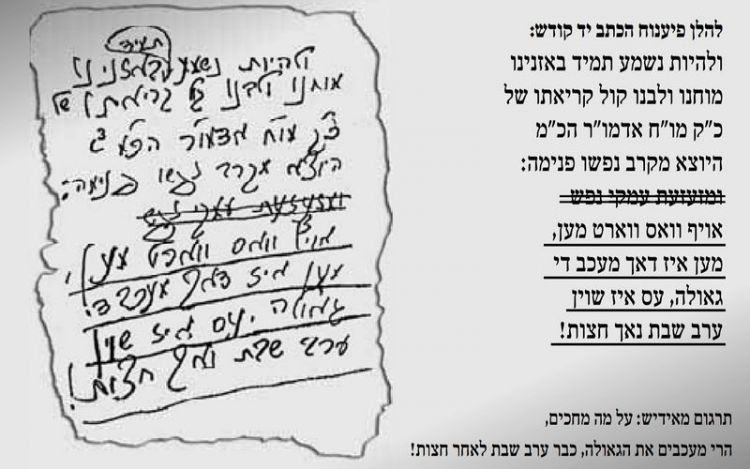 להלן פיענוח הכתב יד קודש:
ולהיות נשמע תמיד באזנינו
מוחנו ולבנו קול קריאתו של
כ״ק מו״ח אדמו״ר הכ״מ
היוצא מקרב נפשו פנימה:
ומזעזעת עמקי נפש
אויף וואס ווארט מען,
מען איז דאך מעכב די
גאולה, עס איז שוין
ערב שבת נאך חצות!
תרגום מאידיש: על מה מחכים,
הרי מעכבים את הגאולה, כבר ערב שבת לאחר חצות!
תמיד
ולהיות נשמע באזנינו
מוחנו ולבנו קול קריאתו של
כ״ק מו״ח אדמו״ר הכ״מ
היוצא מקרב נפשו פנימה:
ומזעזעת עמקי נפש
אויף וואס ווארט מען,
מען איז דאך מעכב די
גאולה, עס איז שוין
ערב שבת נאך חצות!